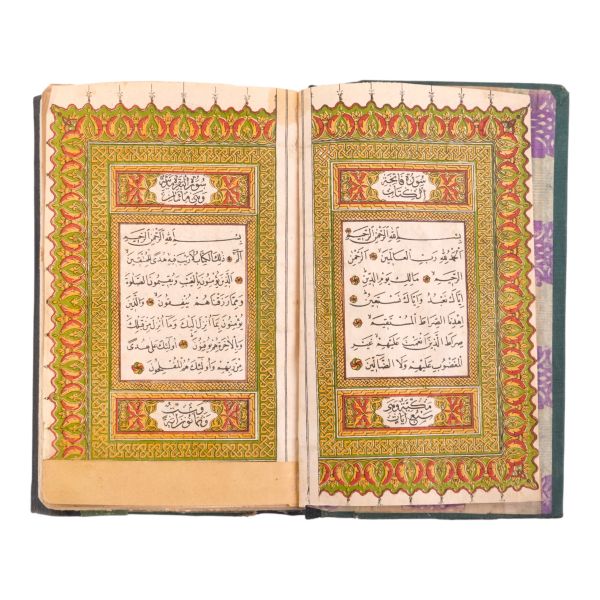 سورة فاتحة
الكتاب
بسم الله الرحمن الرحيم
الحمد لله رب العالمين الرحمن
الرحيم مالك يوم الدين
اياك نعبد واياك نستعين
اهدنا الصراط المستقيم
صراط الذين انعمت عليهم غير
المغضوب عليهم ولا الضالين
مكية وهي
سبع ايات
سورة البقرة
وهي مائتان
بسم الله الرحمن الرحيم
الم ذلك الكتاب لا ريب فيه هدى للمتقين
الذين يؤمنون بالغيب ويقيمون الصلوة
ومما رزقناهم ينفقون والذين
يؤمنون بما انزل اليك وما انزل من قبلك
وبالآخرة هم يوقنون اولئك على هدى
من ربهم واولئك هم المفلحون
وست
وثمانون آية